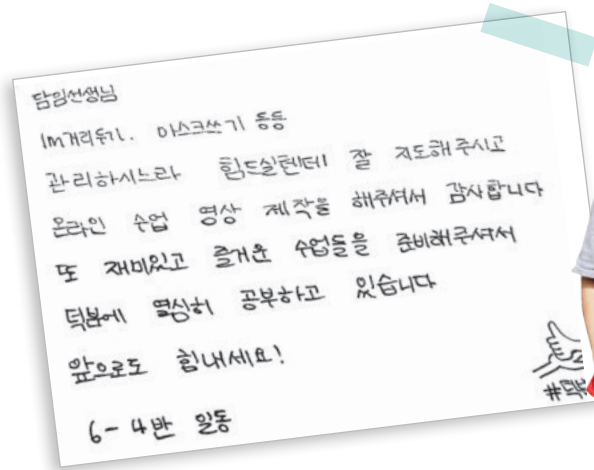 담임선생님
1m거리두기. 마스크쓰기 등등
관리하시느라 힘드실텐데 잘 지도해주시고
온라인 수업 영상 제작을 해주셔서 감사합니다
또 재미있고 즐거운 수업들을 준비해주셔서
덕분에 열심히 공부하고 있습니다
앞으로도 힘내세요!
6-4반 일동